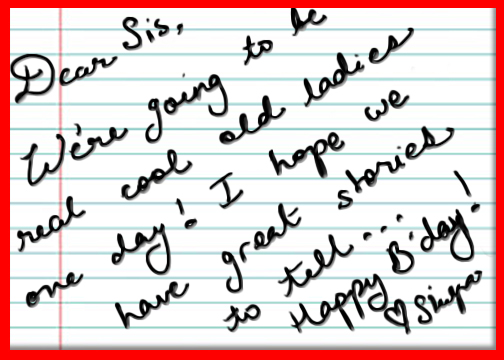 Dear Sis,
We're going to be
real cool old ladies
one day! I hope we
have great stories
to tell...
Happy B'day!
♡